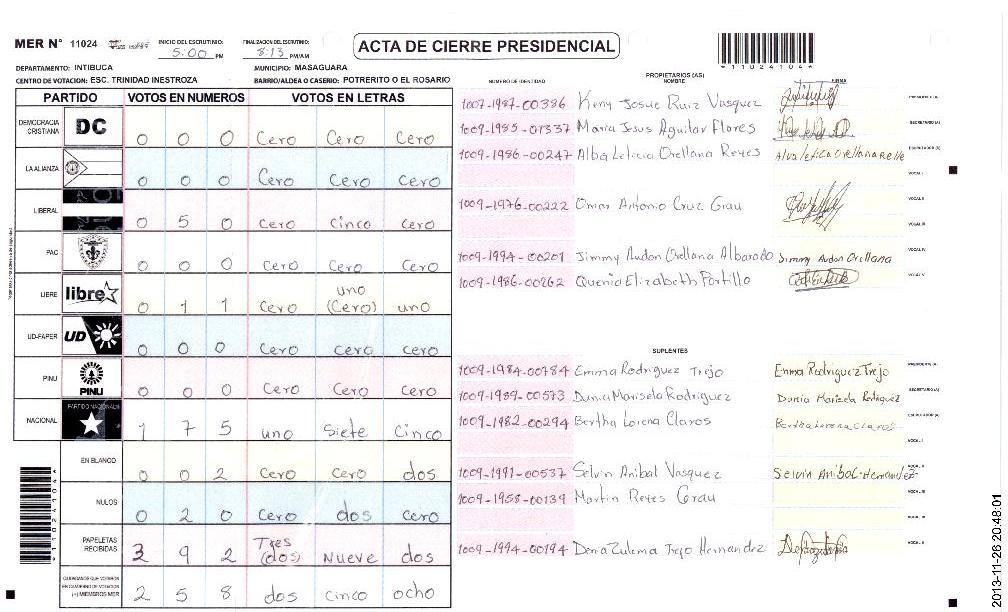 MER N° 11024
INICIO DEL ESCRUTINIO: 5:00 PM
FINALIZACION DEL ESCRUTINIO: 8:13 PM/AM
ACTA DE CIERRE PRESIDENCIAL
*11024104*
DEPARTAMENTO: INTIBUCA
MUNICIPIO: MASAGUARA
CENTRO DE VOTACION: ESC. TRINIDAD INESTROZA
BARRIO/ALDEA O CASERIO: POTRERITO O EL ROSARIO
PARTIDO VOTOS EN NUMEROS VOTOS EN LETRAS
DEMOCRACIA CRISTIANA DC 0 0 0 Cero Cero Cero
LA ALIANZA 0 0 0 Cero Cero Cero
LIBERAL 0 5 0 Cero Cinco Cero
PAC 0 0 0 Cero Cero Cero
LIBRE libre 0 1 1 Cero uno (Cero) uno
UD-FAPER UD 0 0 0 Cero Cero Cero
PINU PINU 0 0 0 Cero Cero Cero
NACIONAL PARTIDO NACIONAL 1 7 5 uno Siete Cinco
EN BLANCO 0 0 2 Cero Cero dos
NULOS 0 2 0 Cero dos Cero
PAPELETAS RECIBIDAS 3 9 2 Tres (dos) Nueve dos
CIUDADANOS QUE VOTARON EN CUADERNO DE VOTACION (+) MIEMBROS MER 2 5 8 dos cinco ocho
*11024104*
PROPIETARIOS (AS)
NUMERO DE IDENTIDAD NOMBRE FIRMA
1007-1987-00386 Keny Josue Ruiz Vasquez PRESIDENTE (A)
1009-1985-01337 Maria Jesus Aguilar Flores SECRETARIO (A)
1009-1986-00247 Alba Leticia Orellana Reyes ESCRUTADOR (A)
VOCAL I
1009-1976-00222 Omar Antonio Cruz Grau VOCAL II
VOCAL III
1009-1994-00201 Jimmy Audon Orellana Albarado Jimmy Audon Orellana VOCAL IV
1009-1986-00262 Quenia Elizabeth Portillo VOCAL V
SUPLENTES
1009-1984-00784 Emma Rodriguez Trejo Emma Rodriguez Trejo PRESIDENTE (A)
1009-1989-00573 Dunia Marisela Rodriguez Dunia Marizela Rodriguez SECRETARIO (A)
1009-1982-00294 Bertha Lorena Claros Bertha Lorena Claros ESCRUTADOR (A)
VOCAL I
1009-1991-00537 Selvin Anibal Vasquez Selvin Anibal Hernandez
1009-1958-00139 Martin Reyes Grau VOCAL III
1009-1994-00194 Denia Zulema Trejo Hernandez
2013-11-26 20:48:01